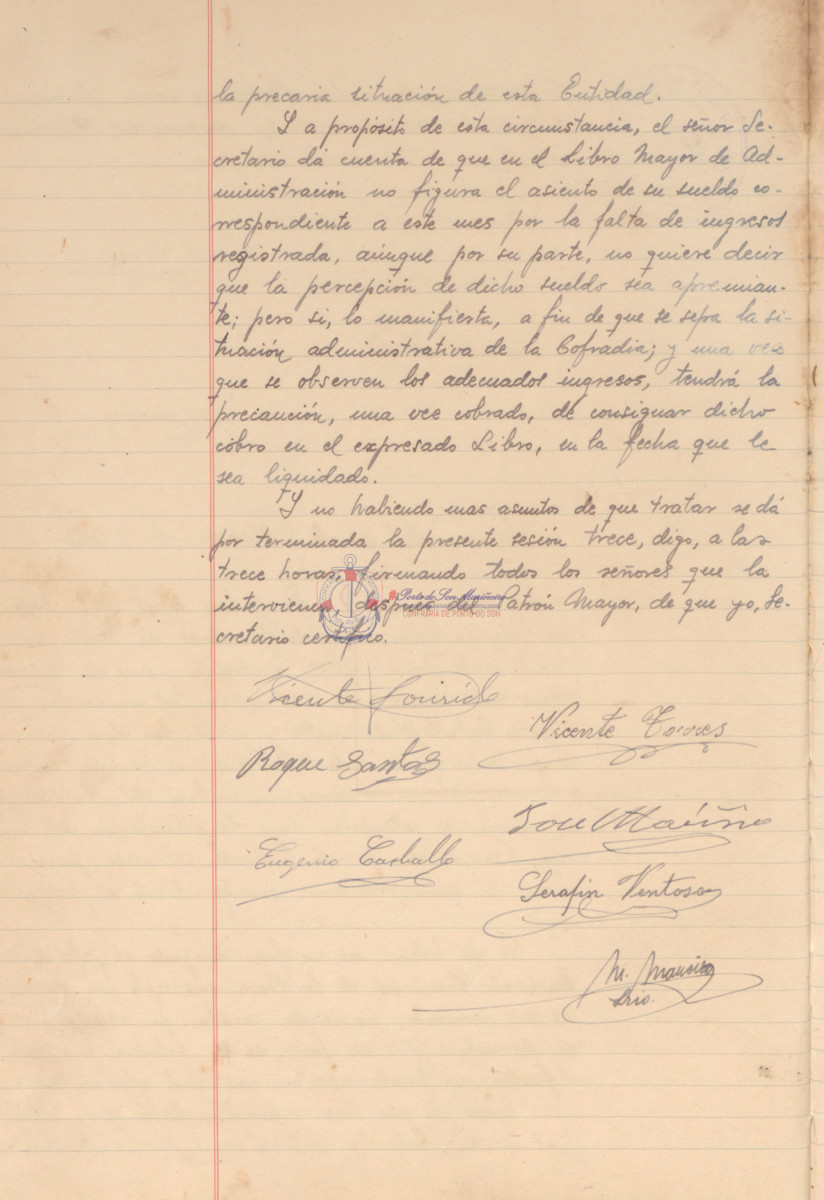 la precaria situación de esta Entidad.
Y a propósito de esta circunstancia, el señor Se-
cretario dá cuenta de que en el Libro Mayor de Ad-
ministración no figura el asiento de su sueldo co-
rrespondiente a este mes por la falta de ingresos
registrada, aúnque por su parte, no quiere decir
que la percepción de dicho sueldo sea apremian-
te; pero si, lo manifiesta, a fin de que se sepa la si-
tuación administrativa de la Cofradia; y una vez
que se observen los adecuados ingresos, tendrá la
precaución, una vez cobrado, de consignar dicho
cobro en el expresado Libro, en la fecha que le
sea liquidado.
Y no habiendo mas asuntos de que tratar se dá
por terminada la presente sesión trece, digo, a las
trece horas, firmando todos los señores que la
intervienen, después del Patrón Mayor, de que yo, Se-
cretario certifico.
#Porto do Son Mariñeiro
CONFRARÍA DE PORTO DO SON
Vicente
Vicente Torres
Roque Santos
Jose Maíño
Eugenio Carballo
Serafin Ventoso
M. Maneiro
Srio.